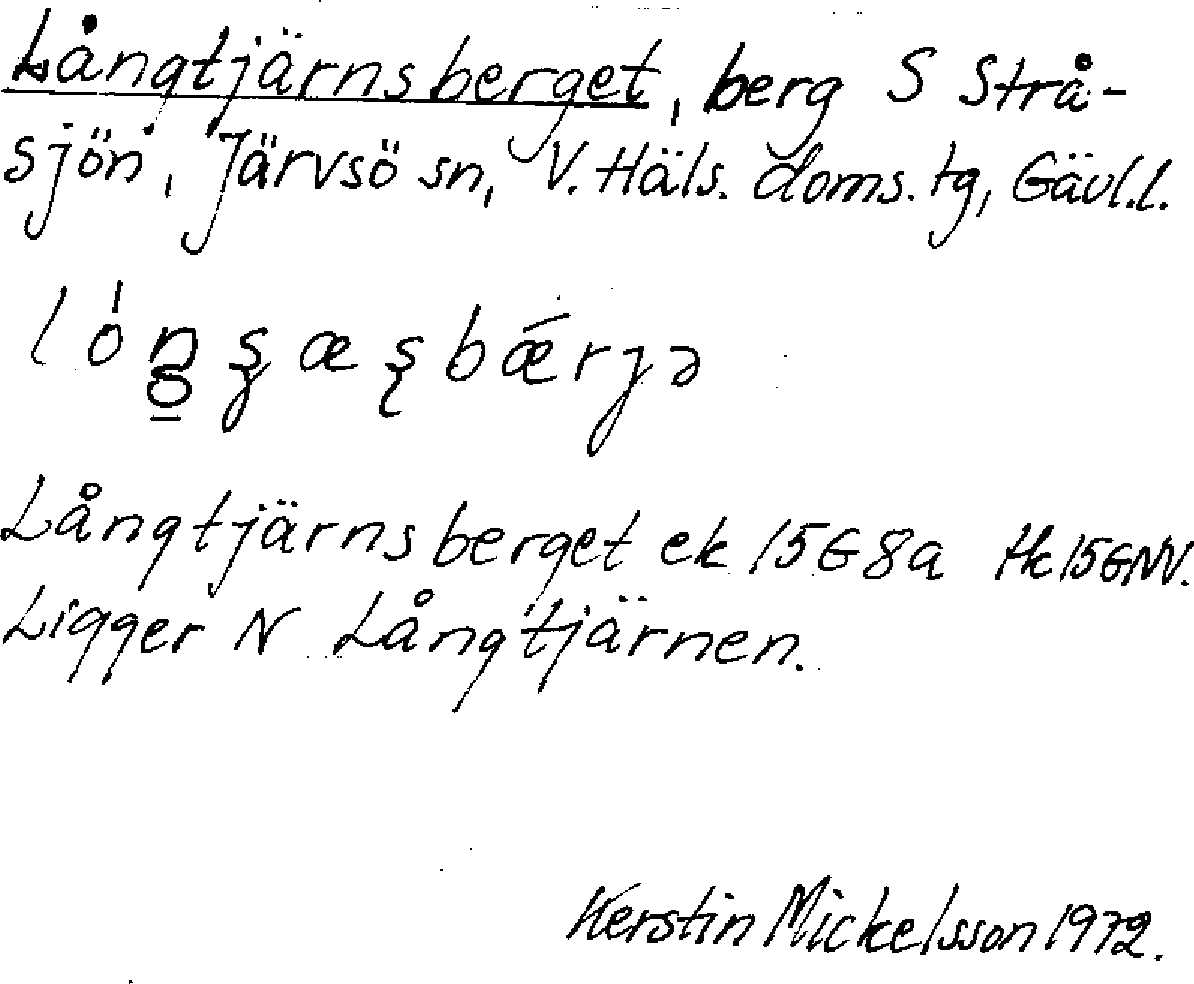 Långtjärnsberget, berg S Strå-
sjön, Järvsö sn, V. Häls. doms. tg, Gävl.l.
Långtjärnsberget ek 15G8a Hk 15GNV.
Ligger N Långtjärnen.
Kerstin Mickelsson 1972.